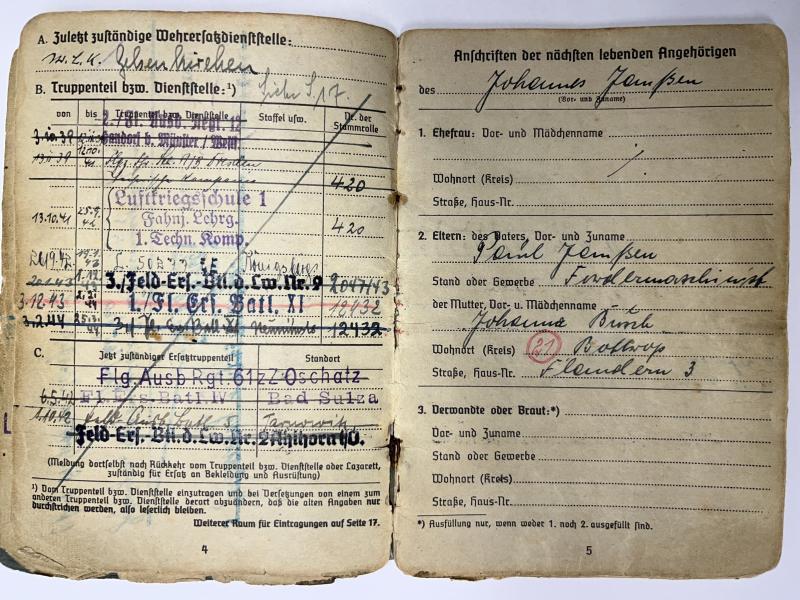 A. Zuletzt zuständige Wehrersatzdienststelle:
W. B. K. Gelsenkirchen
B. Truppenteil bzw. Dienststelle:¹) Siehe S. 17.
von bis Truppenteil bzw. Dienststelle Staffel usw. Nr. der Stammrolle
2./Fl. Ausb. Regt. 12
3.10.39 Handorf b. Münster / Westf
13.11.39
420
Luftkriegsschule 1
13.10.41 Fahnj. Lehrg. 420
1. Techn. Komp.
20.1.43 3./Feld-Ers.-Btl. d. Lw. Nr. 9 2047/43
3.12.43 1./Fl. Ers. Batl. XI 12432
3.2.44 12432
C. Jetzt zuständiger Ersatztruppenteil Standort
Flg. Ausb Rgt. 61 z Z Oschatz
6.5.42 Fl. Ers. Batl. IV Bad Sulza
1.10.42 Tarnowitz
Feld-Ers.-Btl. d. Lw. Nr. 2 Ahlhorn i/O.
(Meldung dortselbst nach Rückkehr vom Truppenteil bzw. Dienststelle oder Lazarett,
zuständig für Ersatz an Bekleidung und Ausrüstung)
¹) Vom Truppenteil bzw. Dienststelle einzutragen und bei Versetzungen von einem zum
anderen Truppenteil bzw. Dienststelle derart abzuändern, daß die alten Angaben nur
durchstrichen werden, also leserlich bleiben.
Weiterer Raum für Eintragungen auf Seite 17.
4
Anschriften der nächsten lebenden Angehörigen
des Johannes Janßen
(Vor- und Zuname)
1. Ehefrau: Vor- und Mädchenname
Wohnort (Kreis)
Straße, Haus-Nr.
2. Eltern: des Vaters, Vor- und Zuname
Paul Janßen
Stand oder Gewerbe Fördermaschinist
der Mutter, Vor- u. Mädchenname
Johanna Busch
Wohnort (Kreis) 21 Bottrop
Straße, Haus-Nr. Flandern 3
3. Verwandte oder Braut:*)
Vor- und Zuname
Stand oder Gewerbe
Wohnort (Kreis)
Straße, Haus-Nr.
*) Ausfüllung nur, wenn weder 1. noch 2. ausgefüllt sind.
5